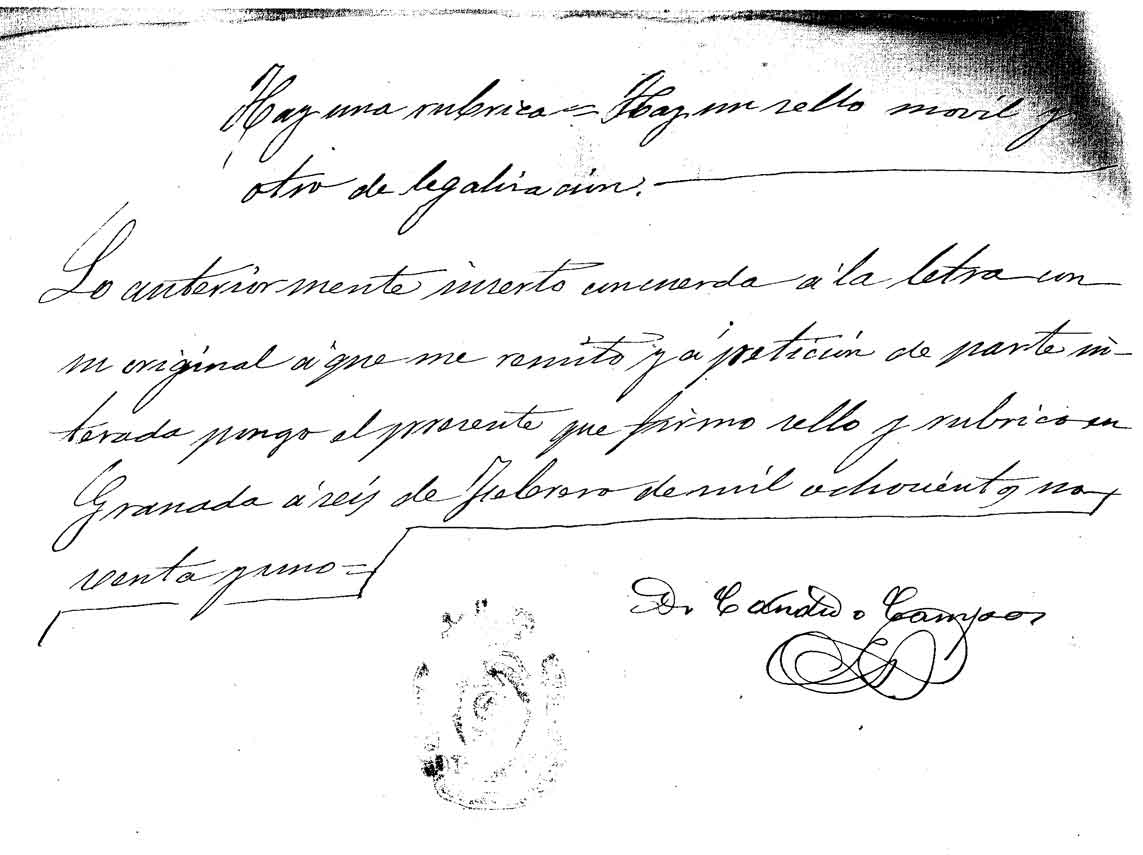 Hay una rubrica = Hay un sello movil y
otro de legalización.
Lo anteriormente inserto concuerda á la letra con
su original á que me remito y á petición de parte in-
terada pongo el presente que firmo sello y rubrico en
Granada á seis de Febrero de mil ochocientos no-
venta y uno =
Dr Cándido Campos